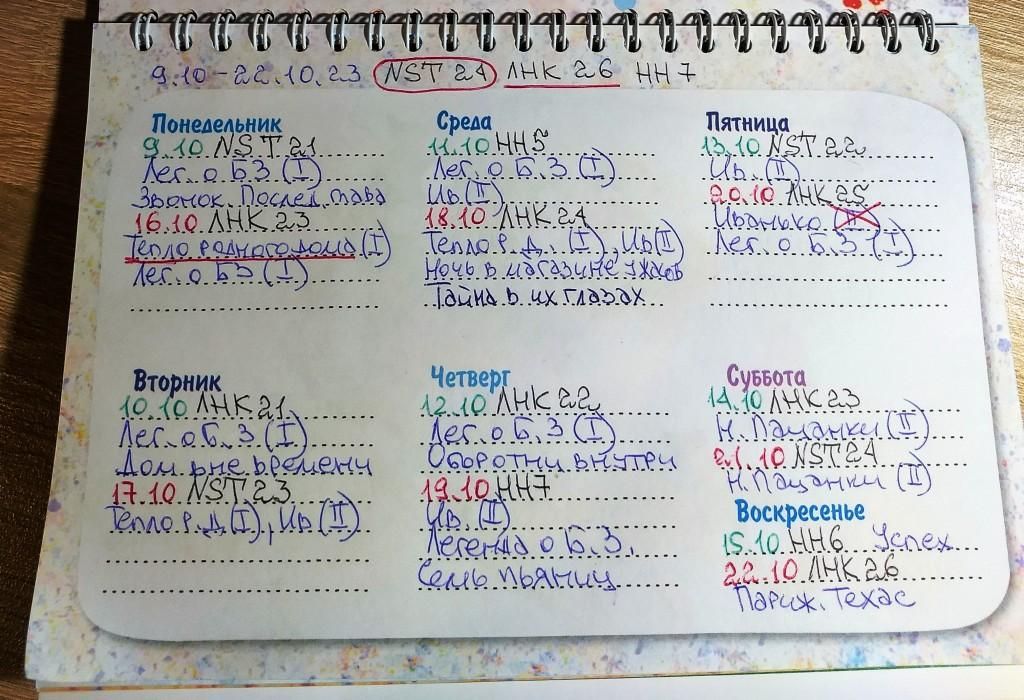 9.10 - 22.10.23 NST 24 ЛНК 26 НН 7
Понедельник
9.10 NST 21
Лег. о Б З (I)
Звонок. Послед. глава
16.10 ЛНК 23
Тепло родного дома (I)
Лег. о БЗ (I)
Среда
11.10 НН5
Лег. о Б. З (I)
Ив (II)
18.10 ЛНК 24
Тепло р. д. (I), Ив (II)
Ночь в магазине ужасов
Тайна в их глазах
Пятница
13.10 NST 22
Ив. (II)
20.10 ЛНК 25
Иванько (II)
Лег. о Б. З (I)
Вторник
10.10 ЛНК 21
Лег. о Б. З (I)
Дом вне времени
17.10 NST 23
Тепло р. д (I), Ив (II)
Четверг
12.10 ЛНК 22
Лег. о Б. З (I)
Оборотни внутри
19.10 НН7
Ив. (II)
Легенда о Б. З.
Семь пьяниц
Суббота
14.10 ЛНК 23
Н. Пацанки (II)
21.10 NST 24
Н. Пацанки (II)
Воскресенье
15.10 НН6 Успех
22.10 ЛНК 26
Париж. Техас